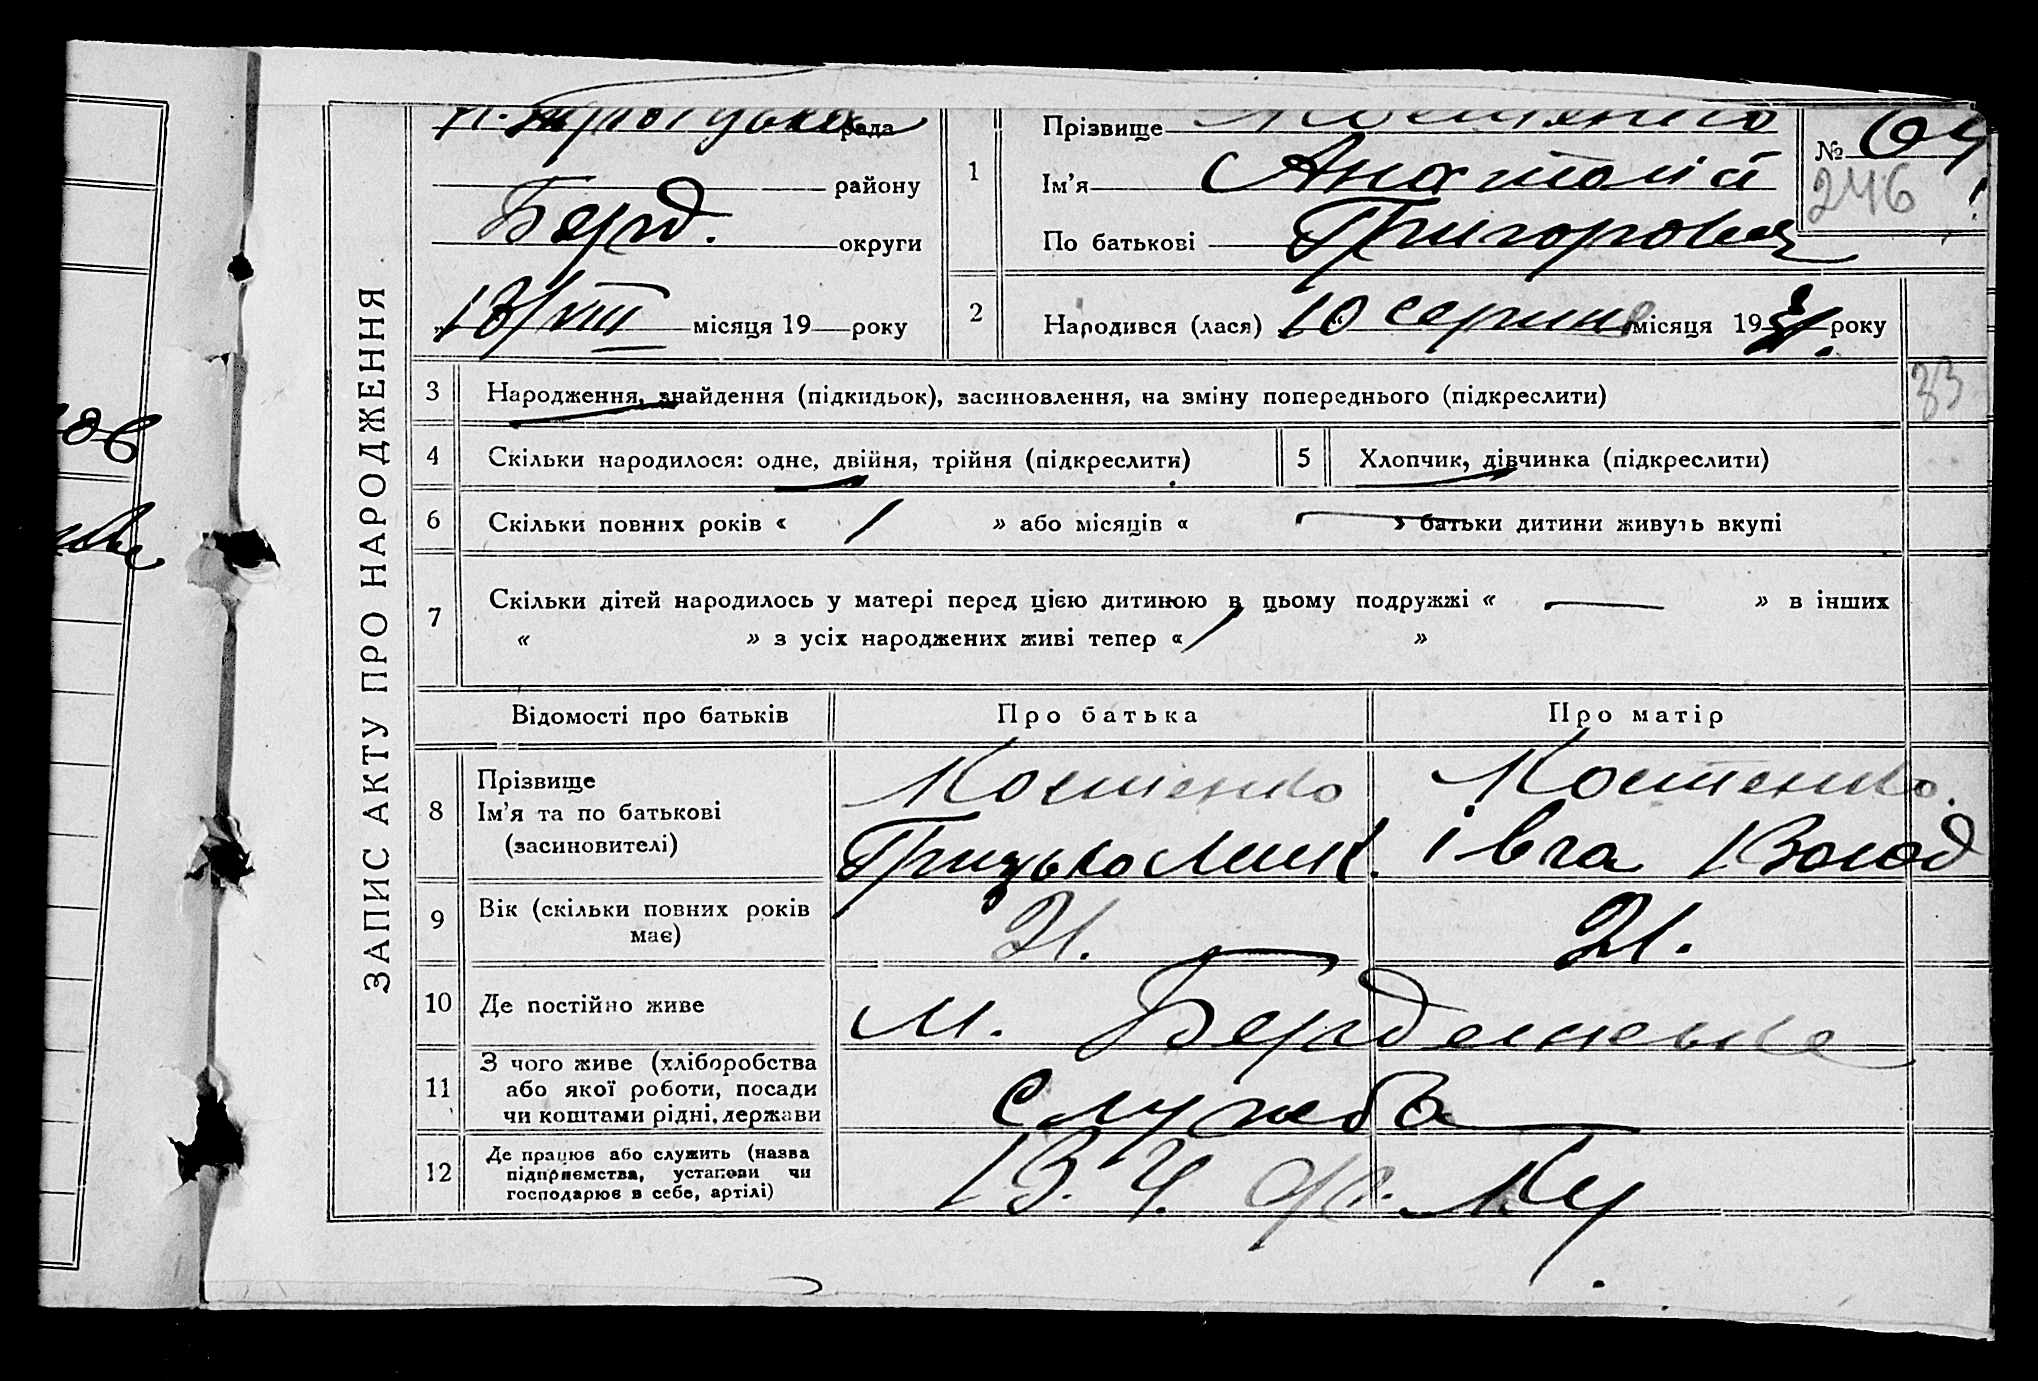 ЗАПИС АКТУ ПРО НАРОДЖЕННЯ
рада
району
Берд. округи
„13/VIII місяця 19 року
1
Прізвище Костенко
Ім'я Анатолій
По батькові Григорович
№ 64
246
2
Народився (лася) „10 серпня місяця 1931 року
33
3 Народження, знайдення (підкидьок), засиновлення, на зміну попереднього (підкреслити)
4 Скільки народилося: одне, двійня, трійня (підкреслити)
5 Хлопчик, дівчинка (підкреслити)
6 Скільки повних років « 1 » або місяців « — » батьки дитини живуть вкупі
7 Скільки дітей народилось у матері перед цією дитиною в цьому подружжі « — » в інших
« » з усіх народжених живі тепер « »
Відомості про батьків Про батька Про матір
8 Прізвище
Ім'я та по батькові
(засиновителі)
Костенко
Грицько Мик.
Костенко.
Івга Волод
9 Вік (скільки повних років
має)
21.
21.
10 Де постійно живе
м. Берд
11 З чого живе (хліборобства
або якої роботи, посади
чи коштами рідні, держави
служба
12 Де працює або служить (назва
підприємства, установи чи
господарює в себе, артілі)